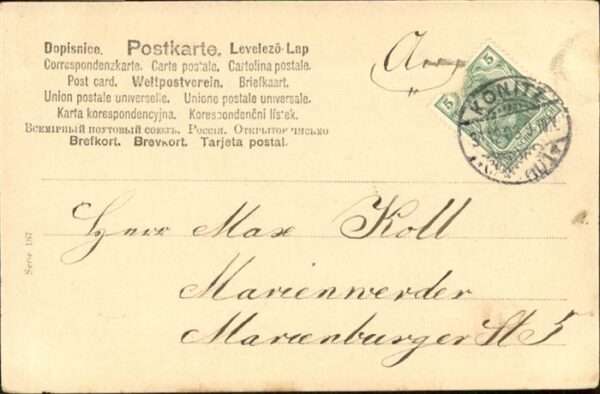 Dopisnice. Postkarte. Levelező-Lap
Correspondenzkarte. Carte postale. Cartolina postale.
Post card. Weltpostverein. Briefkaart.
Union postale universelle. Unione postale universale.
Karta korespondencyjna. Korespondenční lístek.
Всемірный почтовый союзъ. Россія. Открытое письмо
Brefkort. Brevkort. Tarjeta postal.
5 5
KONITZ
Serie 187
Herr Max Koll
Marienwerder
Marienburger St 5